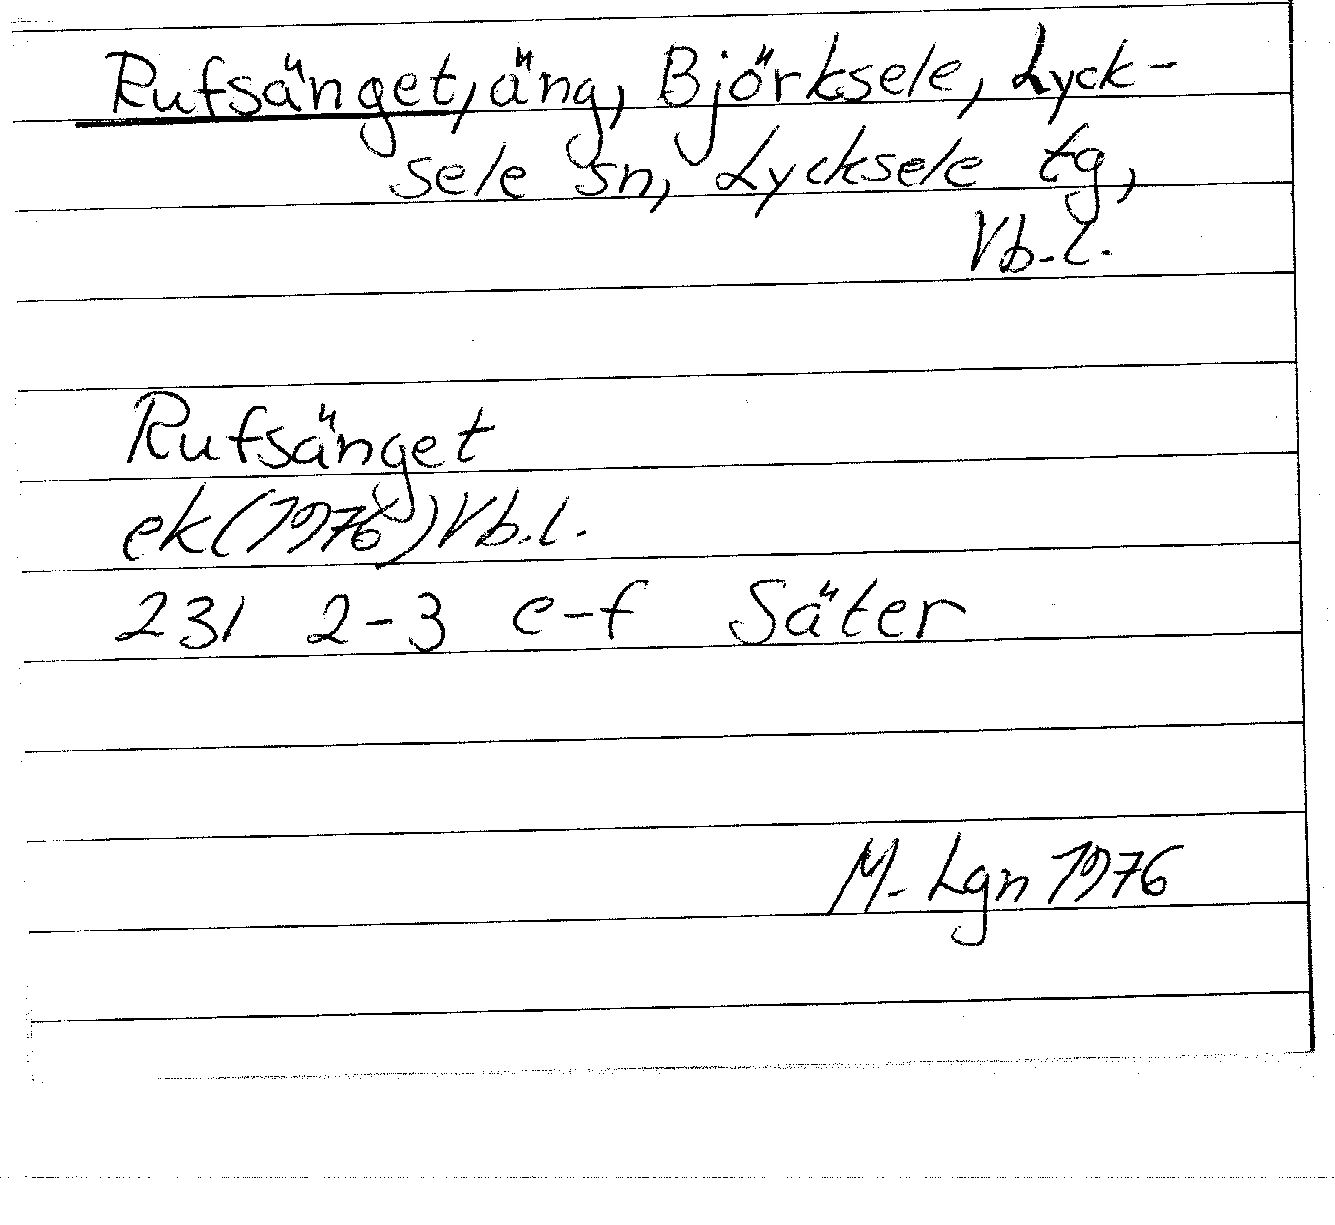 Rufsänget, äng, Björksele, Lyck-
sele sn, Lycksele tg,
Vb.l.
Rufsänget
ek(1976)Vb.l.
231 2-3 e-f Säter
M. Lgn 1976